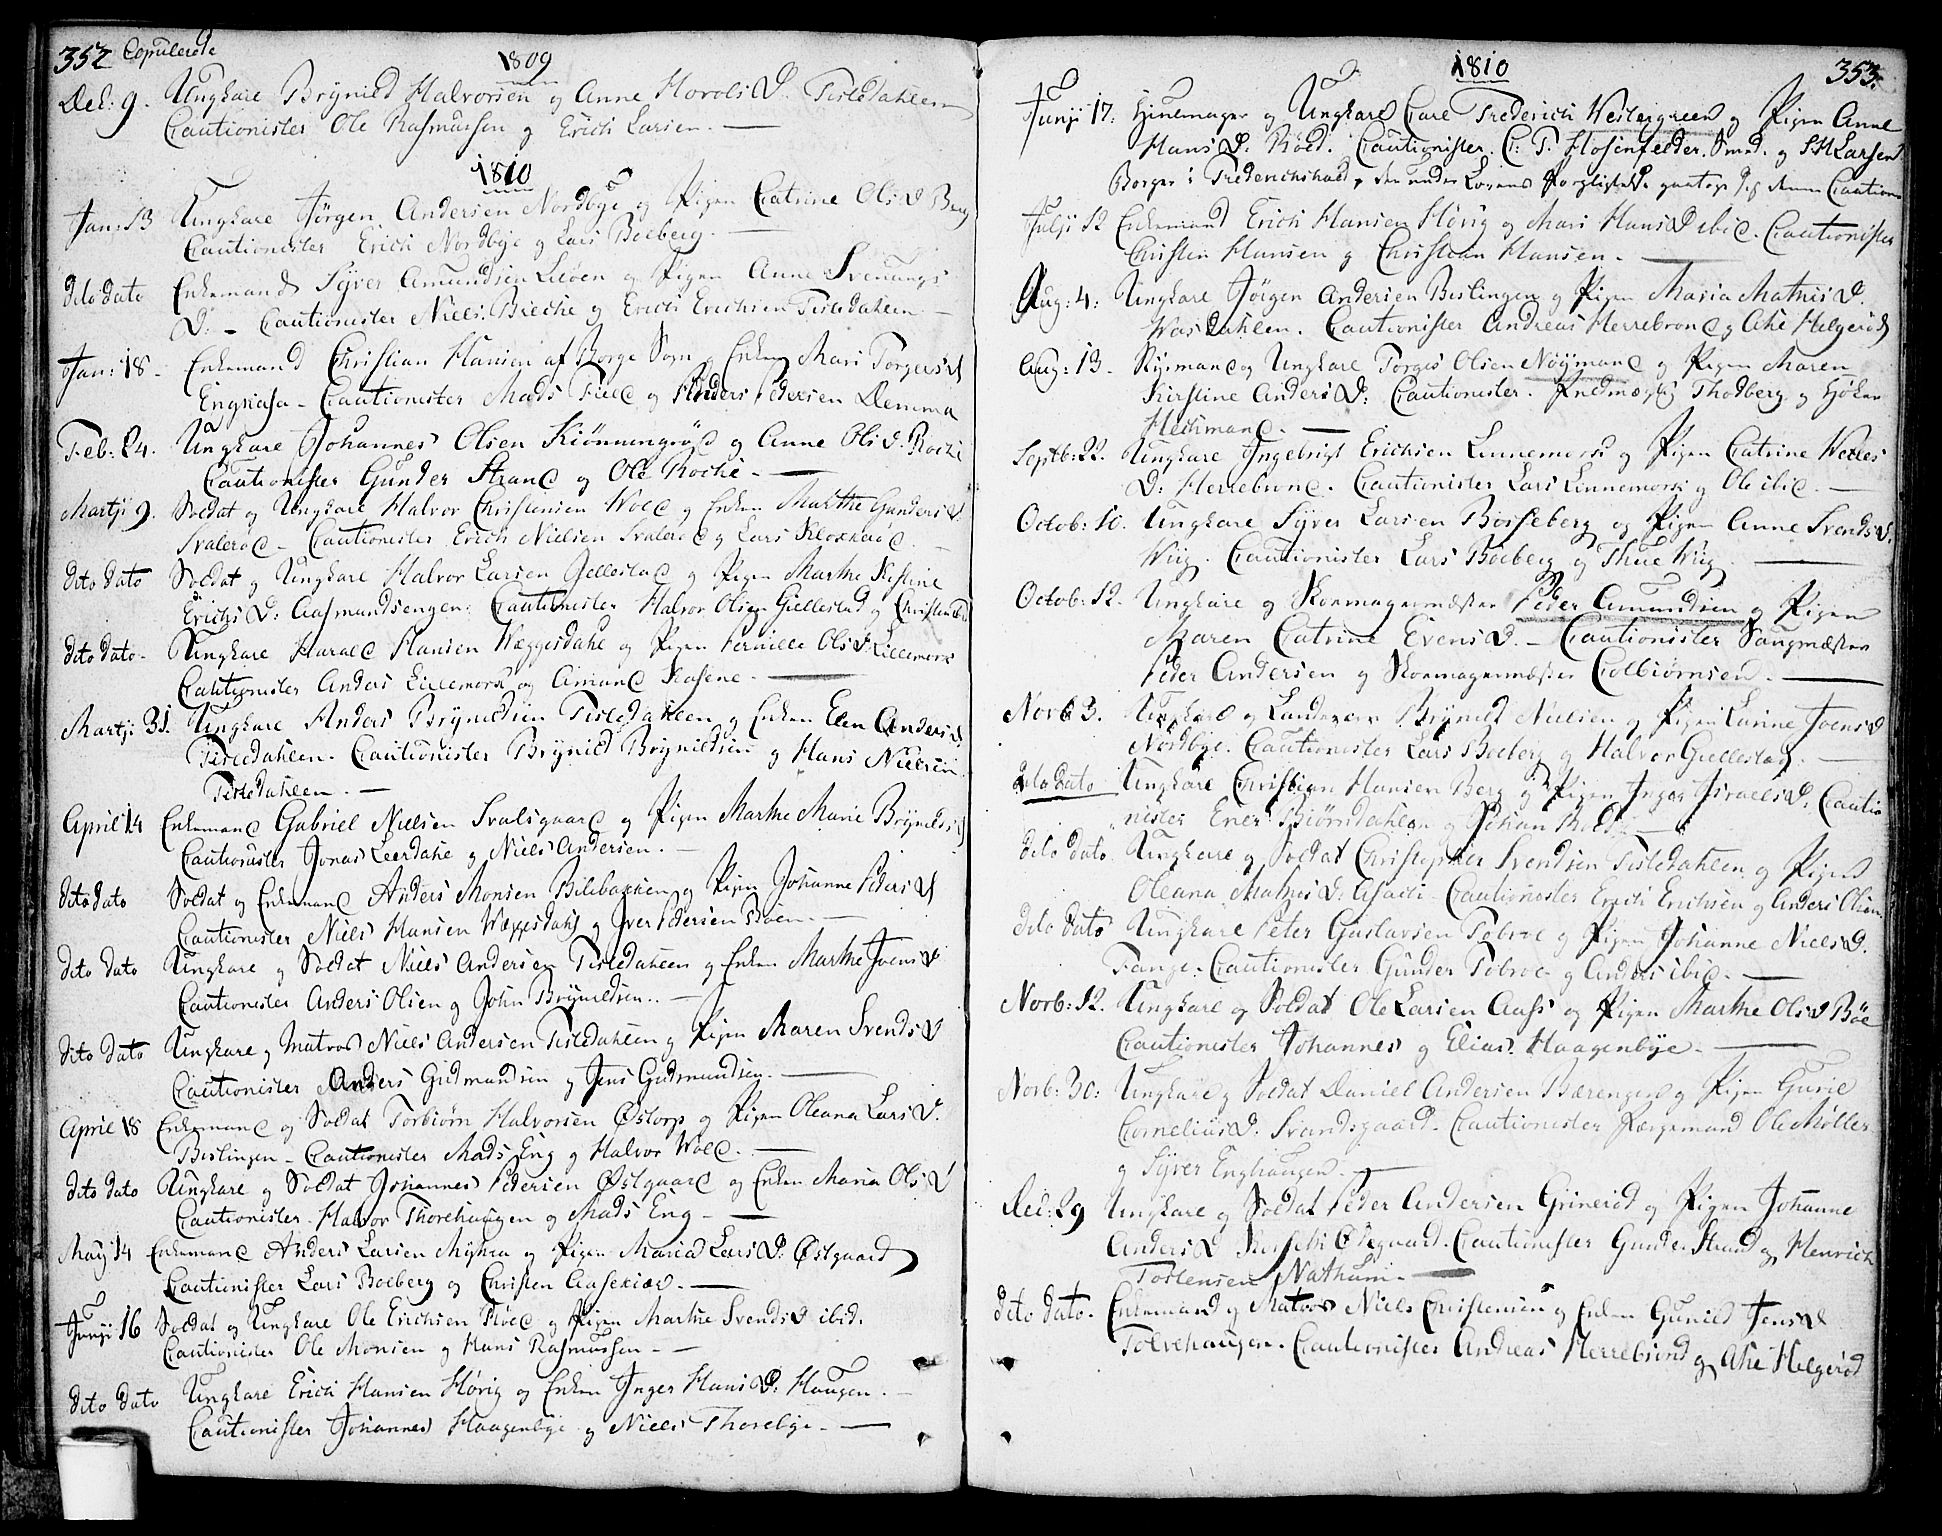 352 Copulerede
1809
Dec: 9. Ungkarl Brynild Halvorsen og Anne HorolsD. Tistedahlen
Cautionister Ole Rasmussen og Erich Larsen.
1810
Jan: 13 Ungkarl Jörgen Andersen Nordbye og Pigen Catrine OlsD Berg
Cautionister Erich Nordbye og Lars Boeberg.
dito dato Enkemand Syver Amundsen og Pigen Anne Svenungs
D. - Cautionister Niels Brecke og Erich Erichsen Tistedahlen
Jan: 18. Enkemand Christian Hansen af Borge Sogn og Enken Mari TorgersD
Engkasa - Cautionister Mads og Peder Pedersen Demma
Feb: 24. Ungkarl Johannes Olsen Kiönningröd og Anne OlsD. Rocke
Cautionister Gunder Strand og Ole Rocke.
Martji 9. Soldat og Ungkarl Halvor Christensen Wold og Enken Marthe GundersD.
Svaleröd - Cautionister Erich Nielsen Svaleröd og Lars Kloxeröd.
dito dato Soldat og Ungkarl Halvor Larsen Gellestad og Pigen Marthe Kistine
ErichsD: Aasmundsengen. Cautionister Halvor Olsen Giellestad og Christen ibid
dito dato. Ungkarl Harald Hansen Wæggesdahl og Pigen Pernille OlsD. Lillemork
Cautionister Anders Lillemork og Amund Kasene.
Martji 31. Ungkarl Anders Brynildsen Tistedahlen og Enken Elen AndersD.
Tistedahlen. Cautionister Brynild Brynildsen og Hans Nielsen
Tistedahlen.
April 14 Enkemand Gabriel Nielsen Svalsgaard og Pigen Marthe Marie BrynildsD
Cautionister Jonas Leerdahl og Niels Andersen.
dito dato Soldat og Enkemand Anders Monsen Bilebakken og Pigen Johanne PedersD
Cautionister Niels Hansen Wæggesdahl og Iver Pedersen Boen.
dito dato Ungkarl og Soldat Niels Andersen Tistedahlen og Enken Marthe JoensD
Cautionister Anders Olsen og John Brynildsen.
dito dato Ungkarl og Matros Niels Andersen Tistedahlen og Pigen Maren SvendsD
Cautionister Anders Gudmundsen og Jens Gudmundsen.
April 18 Enkemand og Soldat Torbiörn Halvorsen Östorp og Pigen Oleana LarsD.
Bislingen - Cautionister Mads Eng og Halvor Wold.
dito dato Ungkarl og Soldat Johannes Pedersen Östgaard og Enken Maria OlsD
Cautionister Halvor Thorehaugen og Mads Eng.
May 14 Enkemand Anders Larsen Myhra og Pigen Maria LarsD. Östgaard
Cautionister Lars Boeberg og Christen Aasekiær.
Junji 16 Soldat og Ungkarl Ole Erichsen Röed og Pigen Marthe SvendsD ibid.
Cautionister Ole Monsen og Hans Rasmussen.
dito dato Ungkarl Erich Hansen Hövig og Enken Inger HansD: Haugen.
Cautionister Johannes Haagenbye og Niels Thorebye.
1810
353.
Junji 17. og Ungkarl Carl Frederich Westergreen og Pigen Anne
HansD. Röed. Cautionister C: T. Hosenfelder, Smed. og S H Larsen
Borger i Frederichshald, under Lovens denne Caution
Julji 12 Enkemand Erich Hansen Hövig og Mari HansD ibid. Cautionister
Christen Hansen og Christian Hansen.
Aug: 4: Ungkarl Jörgen Andersen Bislingen og Pigen Maria MathisD.
Wasdahlen. Cautionister Andreas Herrebrond og Ake Helgeröd
Aug: 13. og Ungkarl Torger Olsen Nöymand og Pigen Maren
Kirstine AndersD: Cautionister. Thodberg og
Heckmand.
Septb: 22. Ungkarl Ingebrigt Erichsen Linnemork og Pigen Catrine Welles
D: Herrebrond. Cautionister Lars Linnemork og Ole ibid.
Octob: 10. Ungkarl Syver Larsen Borseberg og Pigen Anne SvendsD.
Wiig. Cautionister Lars Boeberg og Thue Wiig.
Octob: 12. Ungkarl og Skomagermester Peder Amundsen og Pigen
Maren Catrine EvensD. - Cautionister Saugmester
Peder Andersen og Skomagermester Colbiörnsen.
Novb 3. Ungkarl og Brynild Nielsen og Pigen Larine JoensD
Nordbye. Cautionister Lars Boeberg og Halvor Giellestad.
dito dato Ungkarl Christian Hansen Berg og Pigen Inger IsraelsD. Cautio
nister Ener Biörndahlen og Johan
dito dato Ungkarl og Soldat Christopher Svendsen Tistedahlen og Pigen
Oleana MathisD. Asack. Cautionister Erich Erichsen og Anders Olsen
dito dato Ungkarl Peter Gustavsen Tolvoe og Pigen Johanne NielsD.
Tange. Cautionister Gunder Tolvoe og Anders ibid.
Novb: 12. Ungkarl og Soldat Ole Larsen Aass og Pigen Marthe OlsD Böe
Cautionister Johannes og Elias Haagenbye.
Novb: 30: Ungkarl og Soldat Daniel Andersen Bærengen og Pigen Gurie
CorneliusD. Svandsgaard. Cautionister Færgemand Ole Möller
og Syver Enghaugen.
Dec: 29 Ungkarl og Soldat Peder Andersen Grimeröd og Pigen Johanne
AndersD Ödegaard. Cautionister Gunder Strand og Henrich
Tostensen Nathum.
dito dato. Enkemand og Matros Niels Christensen og Enken Gunild JensD
Tolvehaugen. Cautionister Andreas Herrebrond og Ake Helgeröd